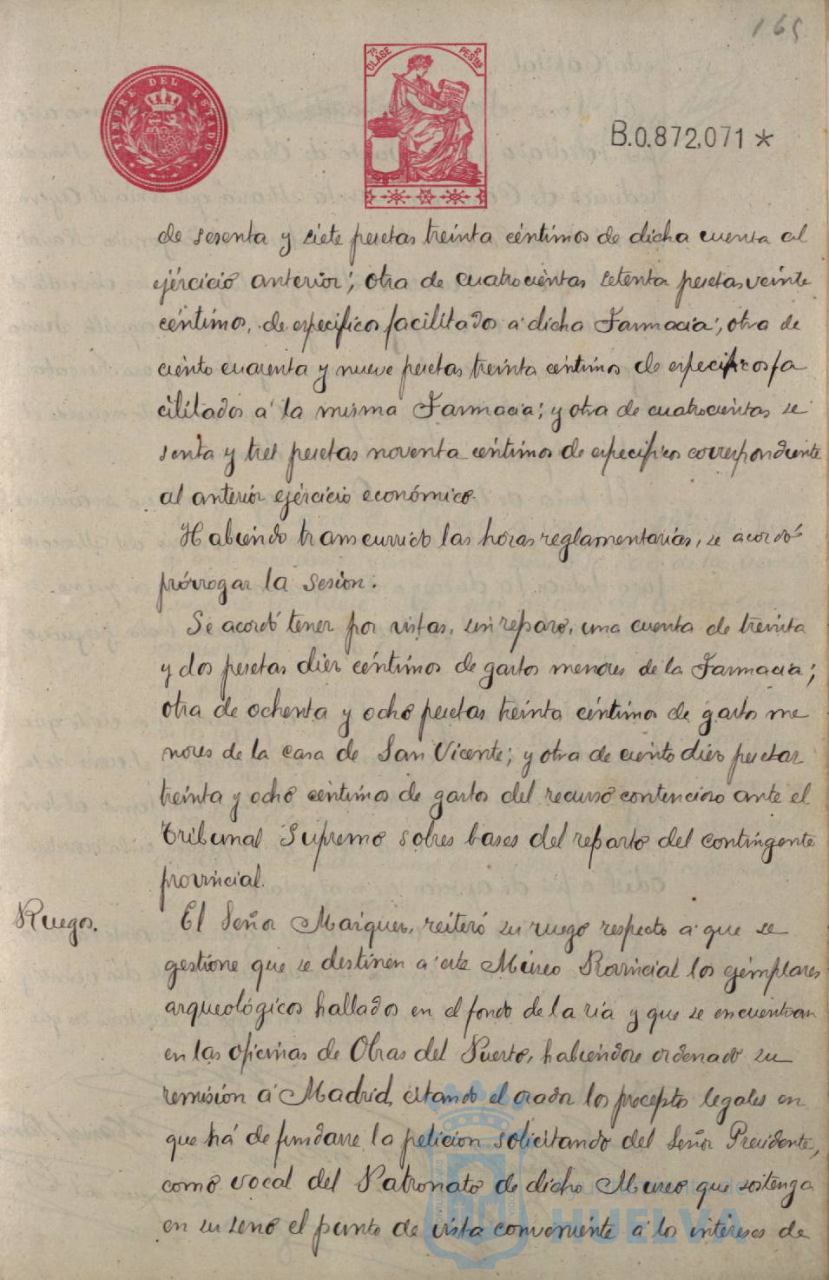 165
TIMBRE DEL ESTADO
7ª CLASE
2 PESTAS
B.0.872,071 *
de sesenta y siete pesetas treinta céntimos de dicha cuenta al
ejércicio anterior; otra de cuatrocientas setenta pesetas veinte
céntimos, de especificos facilitados a dicha Farmacia; otra de
ciento cuarenta y nueve pesetas treinta céntimos de especificos fa
cilitados á la misma Farmacia; y otra de cuatrocientas se
senta y tres pesetas noventa céntimos de especificos correspondiente
al anterior ejércicio económico.
Habiendo transcurrido las horas reglamentarias, se acordó
prórrogar la sesion.
Se acordó tener por vistas, sin reparo, una cuenta de treinta
y dos pesetas diez céntimos de gastos menores de la Farmacia;
otra de ochenta y ocho pesetas treinta céntimos de gastos me
nores de la casa de San Vicente; y otra de ciento diez pesetas
treinta y ocho céntimos de gastos del recurso contencioso ante el
Tribunal Supremo sobres bases del reparto del contingente
provincial.
Ruegos.
El Señor Marquez, reiteró su ruego respecto á que se
gestione que se destinen a este Museo Provincial los ejémplares
arqueológicos hallados en el fondo de la ria y que se encuentran
en las oficinas de Obras del Puerto, habiendose ordenado su
remisión á Madrid, citando el orador los preceptos legales en
que há de fundarse la peticion solicitando del Señor Presidente,
como vocal del Patronato de dicho Museo que sostenga
en su seno el punto de vista conveniente á los intereses de
HUELVA